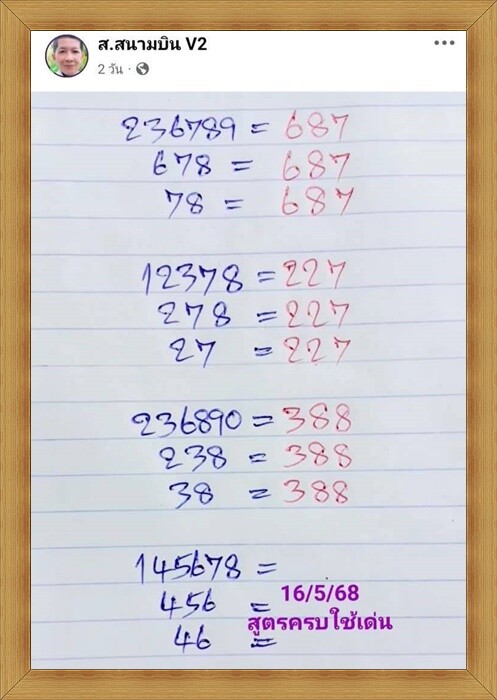 ส.สนามบิน V2
2 วัน ·
236789 = 687
678 = 687
78 = 687
12378 = 227
278 = 227
27 = 227
236890 = 388
238 = 388
38 = 388
145678 =
456 =
46 =
16/5/68
สูตรครบใช้เด่น